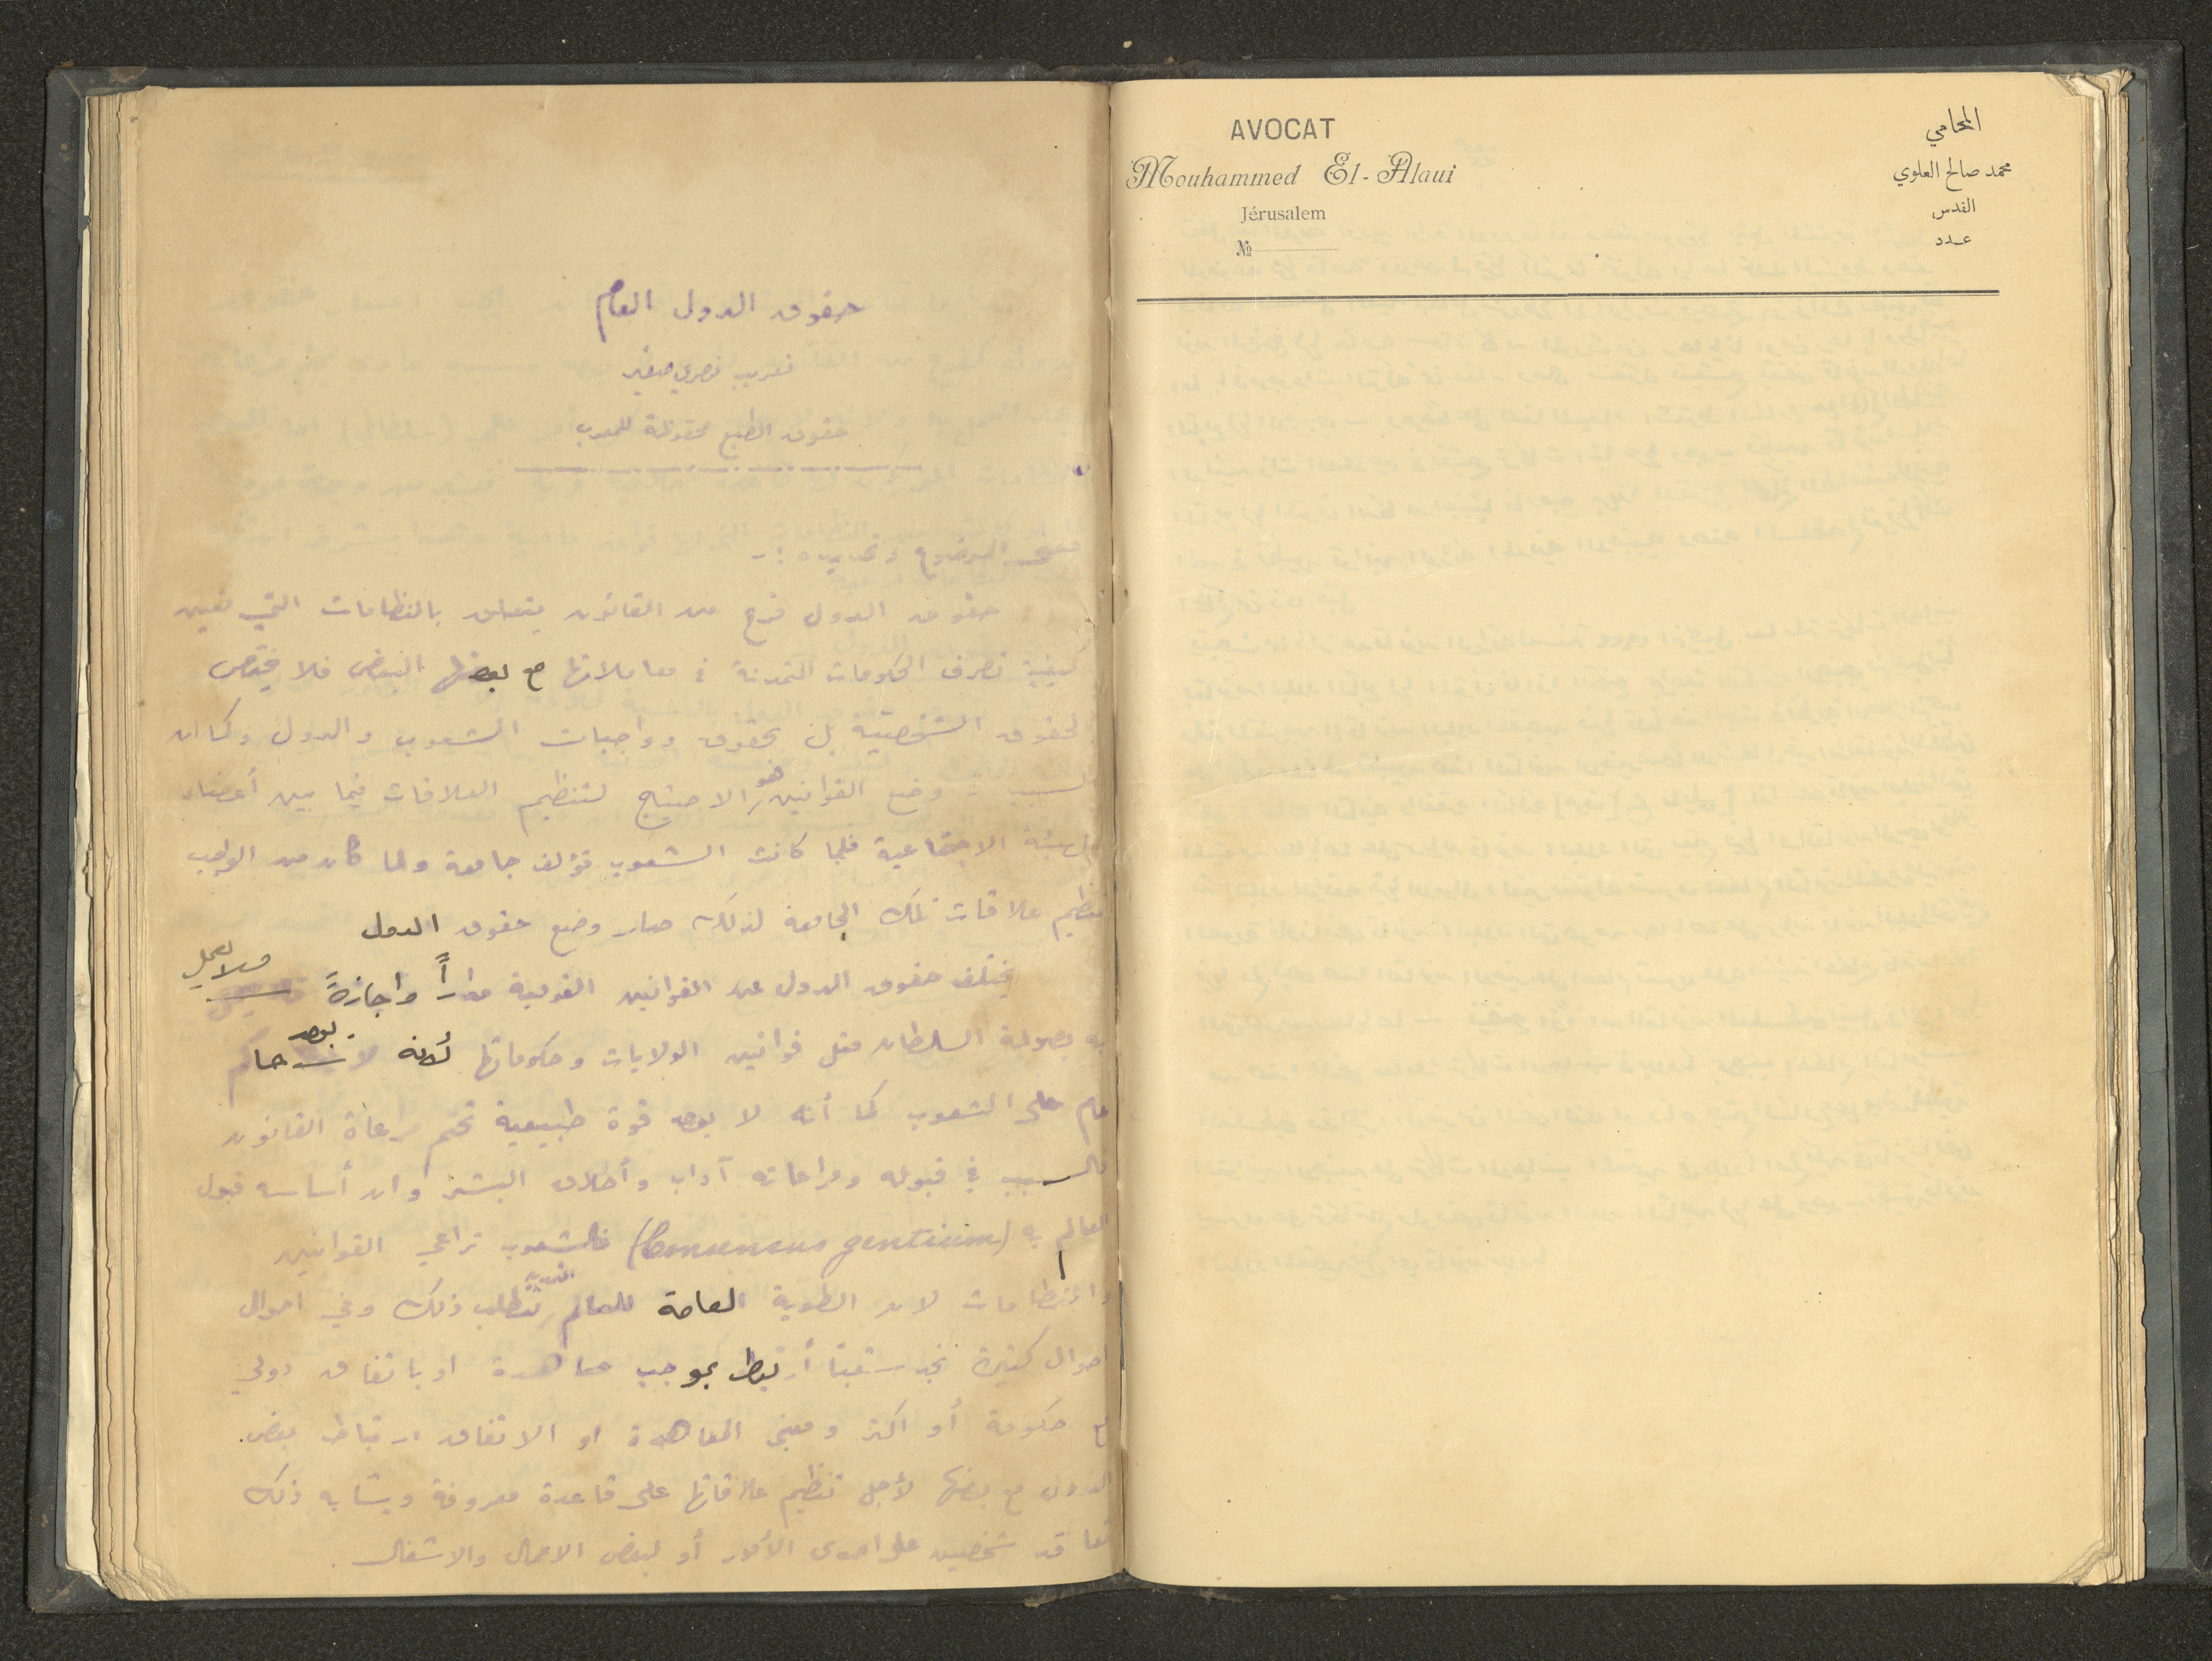 المحامي
محمد صالح العلوي
القدس
عدد
AVOCAT
Mouhammed El-Alaui
Jérusalem
№
حقوق الدول العام
تعريب نصري
حقوق الطبع محفوظة للمعرب
معنى الموضوع وتحديده :-
حقوق الدول فرع من القانون يتعلق بالنظامات التي تعين
كيفية تصرف الحكومات المتمدنة في معاملاتها مع بعضها البعض فلا يختص
لحقوق الشخصية بل بحقوق وواجبات الشعوب والدول وكما ان
السبب وضع القوانين هو الاحتياج لتنظيم العلاقات فيما بين أعضاء
الهيئة الاجتماعية فلما كانت الشعوب تؤلف جامعة ولما كان من الواجب
تنظيم علاقات تلك الجامعة لذلك صار وضع حقوق الدول
يختلف حقوق الدول عن القوانين القومية مداراً واجازةً فلا يعمل
به بصولة السلطان مثل قوانين الولايات وحكوماتها لأنه لا يوجد حاكم
عام على الشعوب كما أنه لا يوجد قوة طبيعية تحتم مراعاة القانون
فالسبب في قبوله ومراعاته آداب وأخلاق البشر وان أساسه قبول
العالم به (Consensus gentium) فالشعوب تراعي القوانين
والنظامات لان الطوية العامة للعالم تتطلب ذلك وفي احوال
احوال كثيرة نجد شعباً أرتبط بموجب معاهدة او باتفاق دولي
مع حكومة أو اكثر ومعنى المعاهدة او الاتفاق ارتباط بعض
الدول مع بعضها لأجل تنظيم علاقاتها على قاعدة معروفة ويشابه ذلك
تعاقد شخصين على احدى الأمور أو لبعض الاعمال والاشغال .